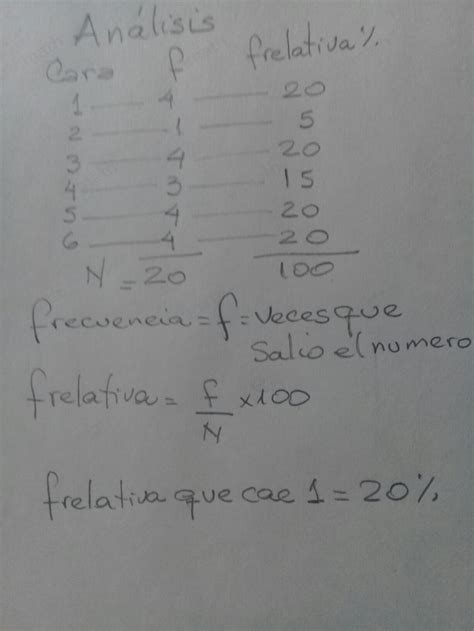 Análisis
Cara f frelativa%
1 4 20
2 1 5
3 4 20
4 3 15
5 4 20
6 4 20
N = 20 100
frecuencia = f = veces que
Salio el numero
frelativa = f/N x100
frelativa que cae 1 = 20%